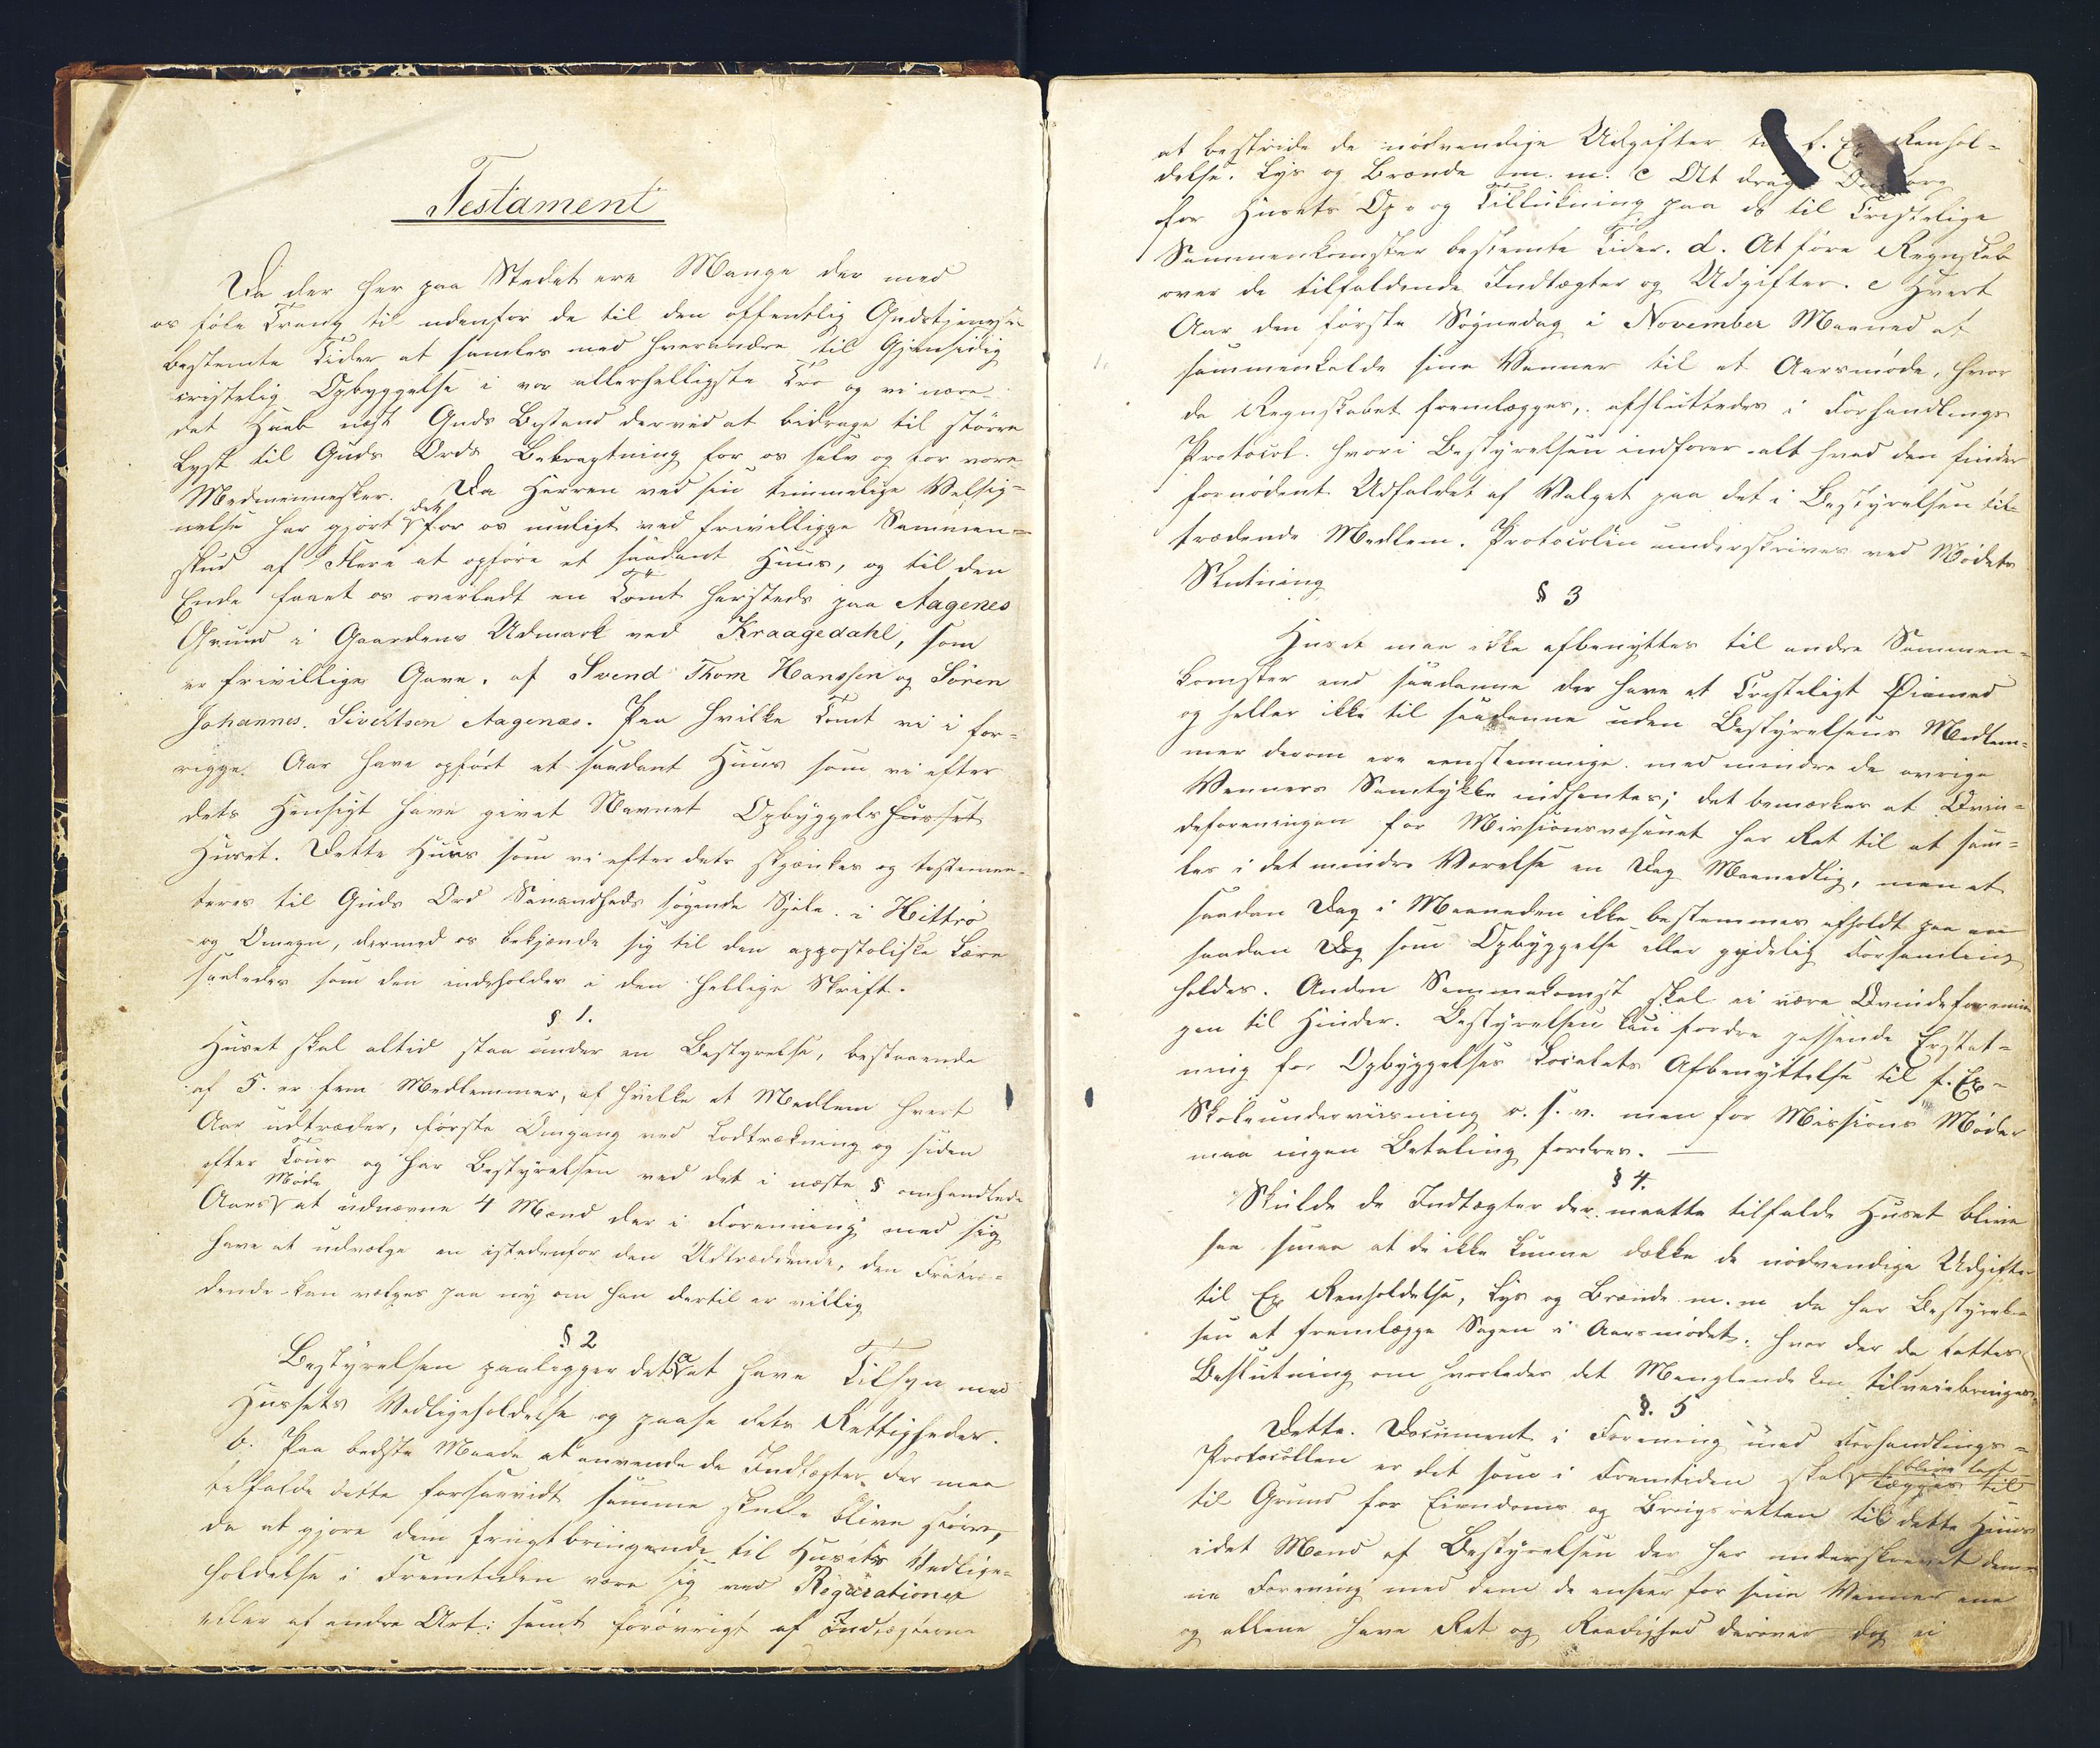 Testament
Da der her paa Stedet ere Mange der med
os føle Trang til udenfor de til den offentlig Gudstjeneste
bestemte Tider at samles med hverandre til Gjensidig
cristelig Opbyggelse i vor allerhelligste Tro og vi nære
det Haab næst Guds Bistand derved at bidrage til større
Lyst til Guds Ords Betragtning for os selv og for vore
Medmennesker. Da Herren ved sin timmelige Velsig-
nelse har gjort det for os muligt ved frivilligge Sammen-
skud af Flere at opføre et saadant Huus, og til den
Ende faaet os overladt en Tomt hersteds paa Aagenes
Grund i Gaardens Udmark ved Kraagedahl, som
er frivillige Gave, af Svend Thom Hanssen og Sören
Johannes. Sivertsen Aagenæs. Paa hvilke Tomt vi i for-
rigge Aar have opført et saadant Huus som vi efter
dets Hensigt have givet Navnet Opbyggelshusset
Huset. Dette Huus som vi efter dets skjænkes og testamen-
teres til Guds Ord Sanandheds søgende Sjele i Hitterö
og Omegn, dermed os bekjende sig til den appostoliske Lære
saaledes som den indeholdes i den hellige Skrift.
§ 1.
Huset skal altid staa under en Bestyrelse, bestaaende
af 5. er fem Medlemmer, af hvilke et Medlem hvert
Aar udtræder, første Omgang ved Lodtrækning og siden
efter Tour og har Bestyrelsen ved det i næste § omhandlede
Aars Møde at udnævne 4 Mænd der i Forenning med sig
have at udvælge en istedenfor den Udtræddende, den Fratræ-
dende kan vælges paa ny om han dertil er villig
§ 2
Bestyrelsen paaligger det a at have Tilsyn med
Hussets Vedligeholdelse og paase dets Rettigheder.
b. Paa bedste Maade at anvende de Indtægter der maa
tilfalde dette forsaavidt samme skulle blive større,
da at gjøre dem frugtbringende til Husets Vedlige-
holdelse i Fremtiden være sig ved Reparationer
eller af andre Art: samt forøvrigt af Indtægterne
at bestride de nødvendige Udgifter til f. Ex Renhol-
delse. Lys og Brænde m. m. c At drage Omsorg
for Husets Op- og Tillukning paa de til Cristelige
Sammenkomster bestemte Tider. d. At føre Regnskab
over de tilfaldende Indtægter og Udgifter. e Hvert
Aar den første Søgnedag i November Maaned at
sammenkalde sine Venner til et Aarsmøde, hvor
da Regnskabet fremlægges, afsluttedes i Forhandlings
Protocol. hvori Bestyrelsen indfører alt hvad den finder
fornødent Udfaldet af Valget paa det i Bestyrelsen til-
trædende Medlem. Protocolen underskrives ved Mødets
Slutning
§ 3
Huset maa ikke afbenyttes til andre Sammen-
komster end saadanne der have et Cristeligt Øiemed
og heller ikke til saadanne uden Bestyrelsens Medlem-
mer derom ere eenstemmige. med mindre de øvrige
Venners Samtykke indhentes; det bemærkes at Qvin-
deforenningen for Missionsvæsenet har Ret til at sam-
les i det mindre Værelse en Dag Maanedlig, men at
saadan Dag i Maaneden ikke bestemmes afholdt paa en
saadan Dag som Opbyggelse eller gudelig Forsamling
holdes. Anden Sammenkomst skal ei være Qvindeforenin
gen til Hinder. Bestyrelsen kan fordre passende Erstat-
ning for Opbyggelses Localets Afbenyttelse til f. Ex-
Skoleunderviisning o. s. v. men for Missions Møder
maa ingen Betaling fordres. —
§ 4.
Skulde de Indtægter der maatte tilfalde Huset blive
saa smaa at de ikke kunne dække de nødvendige Udgifter
til Ex Renholdelse, Lys og Brænde m. m da har Bestyrel-
sen at fremlægge Sagen i Aarsmødet. hvor der da fattes
Beslutning om hvorledes det Manglende kan tilveiebringes
§. 5
Dette. Document i Forening med Forhandlings-
Protocollen er det som i Fremtiden skal blive lagt lægges til
til Grund for Eiendoms og Brugsretten til dette Huus
idet Mænd af Bestyrelsen der har underskrevet den-
ne Forening med dem de anseer for sine Venner ene
og allene have Ret og Raadighed derover dog ei